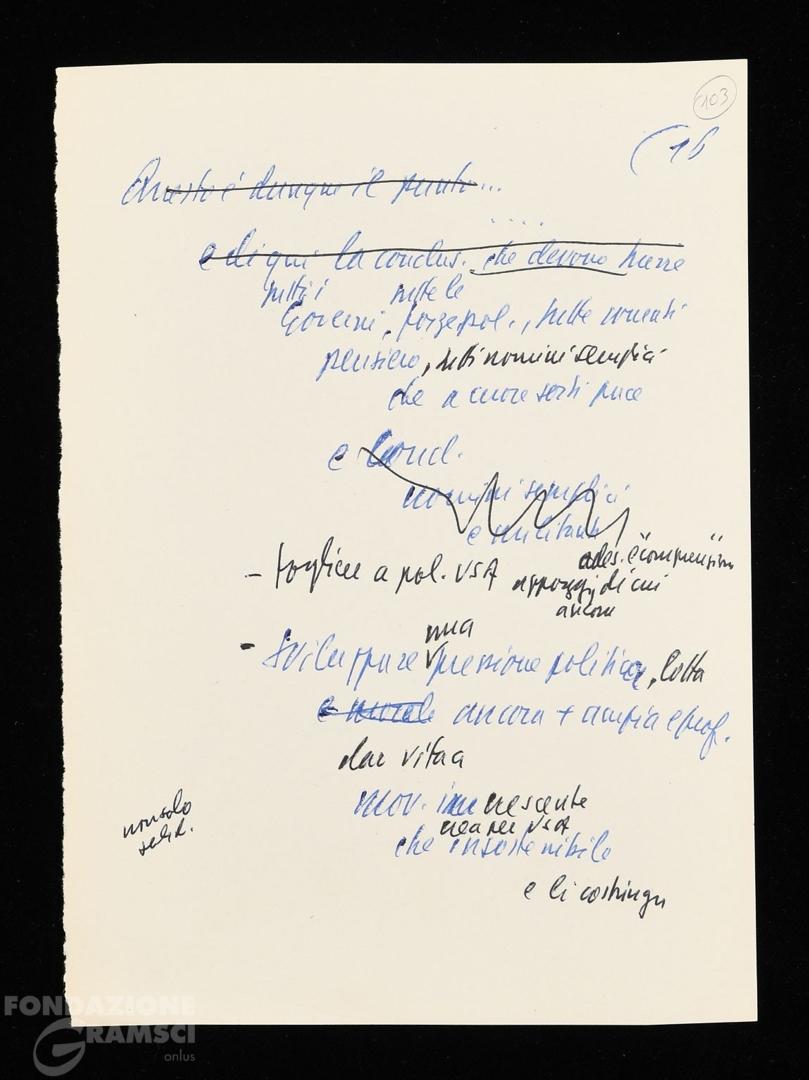 103
16
Questo è dunque il punto...
....
e di qui la conclus. che devono trarre
tutti i tutte le
Governi, forze pol., tutte correnti
pensiero, tutti uomini semplici
che a cuore sorti pace
e
uomini semplici
e militanti
ades. e "comprensione"
- togliere a pol. USA appoggi di cui
ancora
una
- Sviluppare pressione politica, lotta
e morale ancora + ampia e prof.
dar vita a
mov. crescente
che insostenibile
non solo
solid.
e li costringa
FONDAZIONE
GRAMSCI
onlus